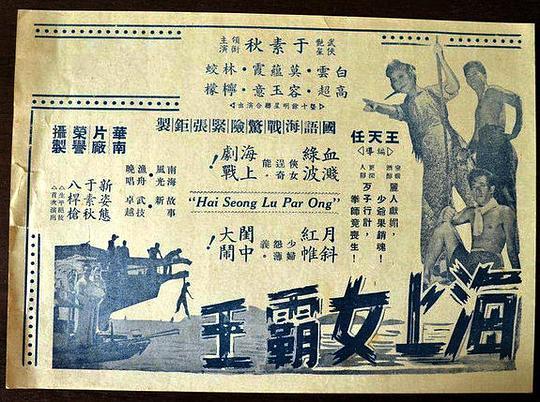 武俠艷星
于素秋
領銜主演
白雲・莫蘊霞・林蛟
高超・容玉意・檸檬
◁暨十餘明星聯合演出▷
國語海戰驚險緊張鉅製
王天任
(編導)
麗人獻媚,少爺果銷魂!
歹子行計,拳師竟喪生!
血濺綠波
俠女逞奇能
海上劇戰!
"Hai Seong Lu Par Ong"
月斜紅帷
少婦怨薄義
閨中大鬧!
華南片廠榮譽攝製
南海風光・漁舟晚唱
故事新・武技卓越
新姿態
于素秋
八桿槍
海上女霸王